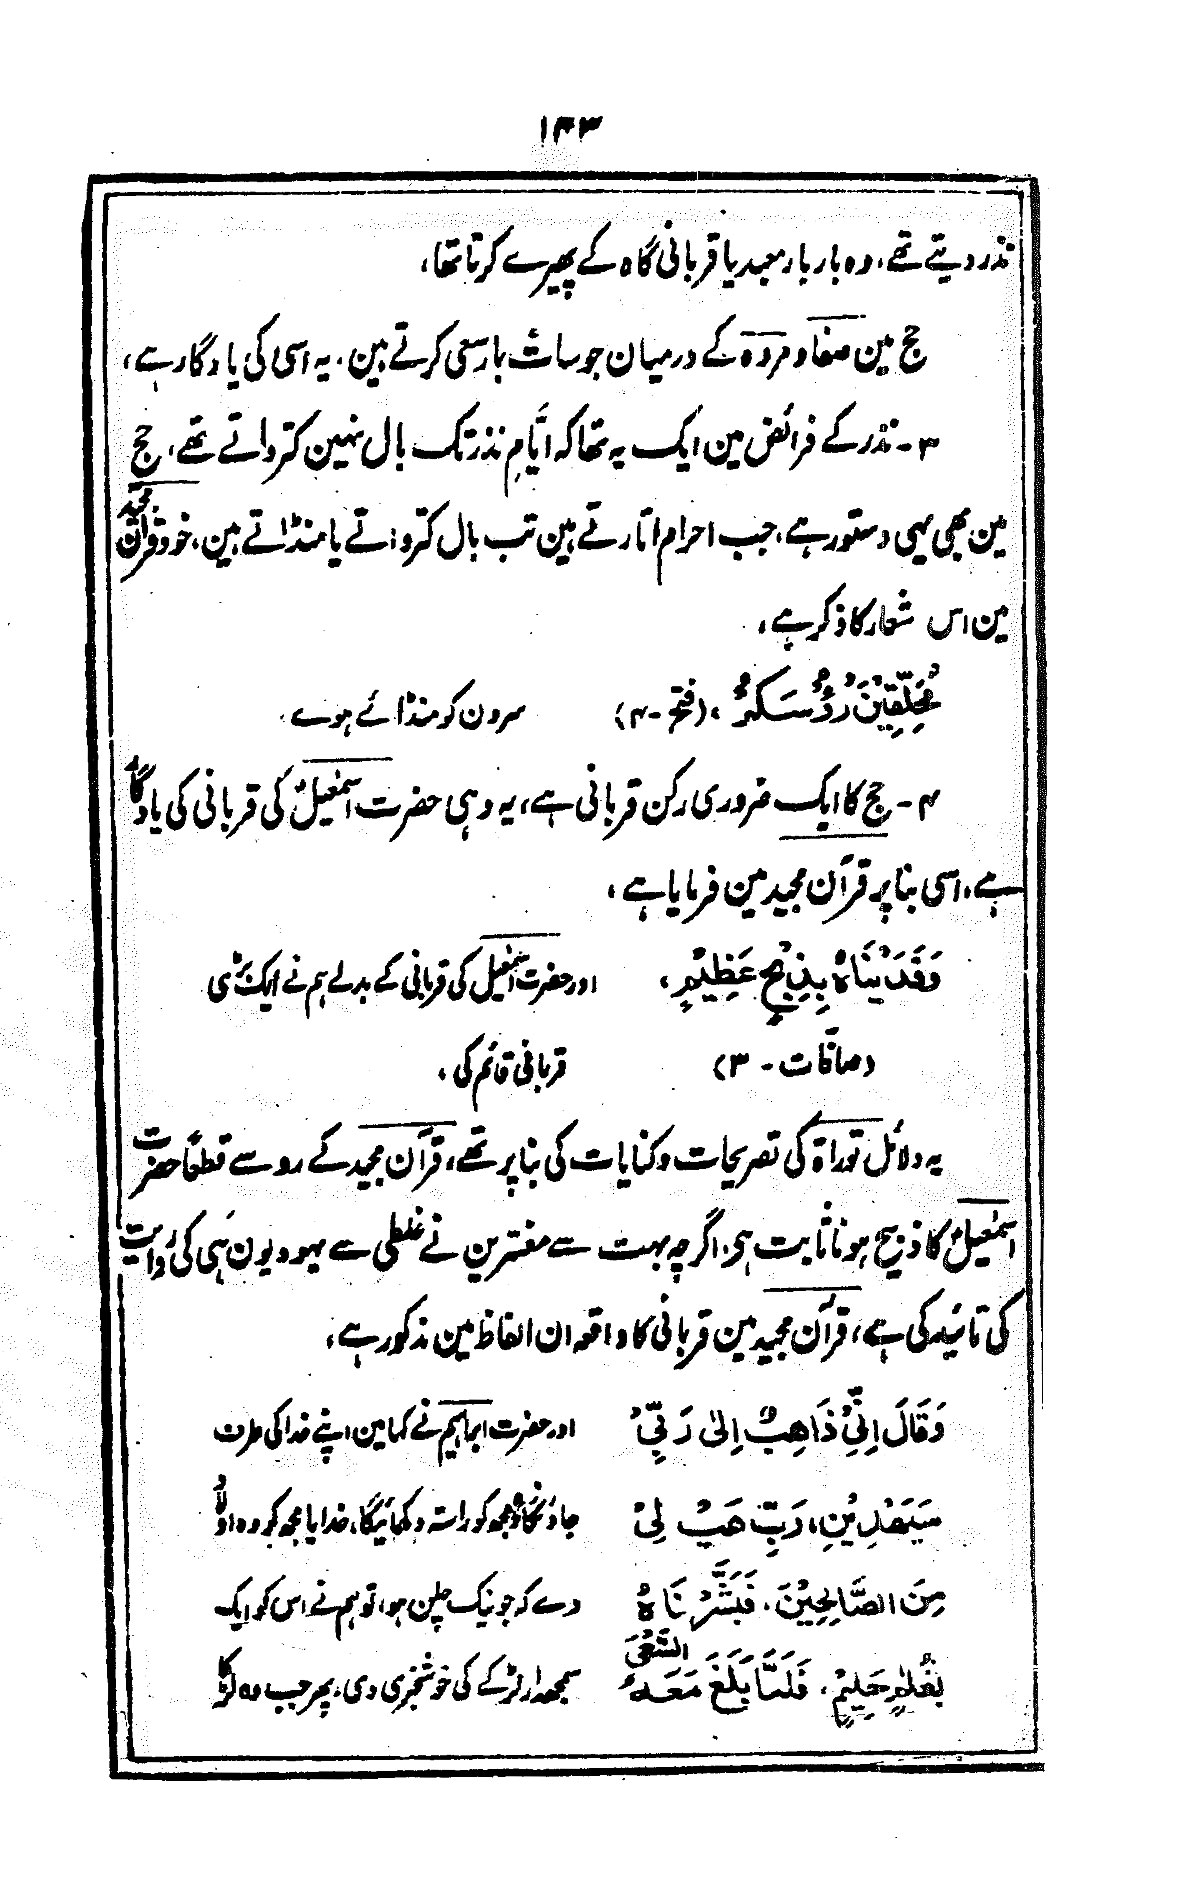 ۱۴۳
نذر دیتے تھے، وہ بار بار معبد یا قربانی گاہ کے پھیرے کرتا تھا،
حج مین صفا و مروہ کے درمیان جو سات بار سعی کرتے ہین، یہ اسی کی یادگار ہے،
۳ - نذر کے فرائض مین ایک یہ تھا کہ ایّامِ نذر تک بال نہین کترواتے تھے، حج
مین بھی یہی دستور ہے، جب احرام اتارتے ہین تب بال کترواتے یا منڈاتے ہین، خود قرآن مجید
مین اس شعار کا ذکر ہے،
مُحَلِّقِیْنَ رُؤُسَکُمْ، (فتح - ۴) سرون کو منڈائے ہوے
۴ - حج کا ایک ضروری رکن قربانی ہے، یہ وہی حضرت اسمٰعیلؑ کی قربانی کی یادگار
ہے، اسی بنا پر قرآن مجید مین فرمایا ہے،
وَفَدَیْنَاهُ بِذِبْحٍ عَظِیْمٍ، اور حضرت اسمٰعیل کی قربانی کے بدلے ہم نے ایک بڑی
(صافات - ۳) قربانی قائم کی،
یہ دلائل توراة کی تصریحات و کنایات کی بنا پر تھے، قرآن مجید کے رو سے قطعاً حضرت
اسمٰعیلؑ کا ذبیح ہونا ثابت ہی، اگرچہ بہت سے مفسرین نے غلطی سے یہودیون ہی کی روایت
کی تائید کی ہے، قرآن مجید مین قربانی کا واقعہ ان الفاظ مین مذکور ہے،
وَقَالَ اِنِّیْ ذَاهِبٌ اِلیٰ رَبِّیْ اور حضرت ابراہیم نے کہا مین اپنے خدا کی طرف
سَیَهْدِیْنِ، رَبِّ هَبْ لِیْ جاؤنگا وہ مجھکو راستہ دکھائیگا، خدایا مجھکو وہ اولاد
مِنَ الصَّالِحِیْنَ، فَبَشَّرْنَاهُ دے کہ جو نیک چلن ہو، تو ہم نے اس کو ایک
بِغُلاٰمٍ حَلِیْمٍ، فَلَمَّا بَلَغَ مَعَهُ السَّعْیَ سمجھدار لڑکے کی خوشخبری دی، پھر جب وہ لڑکا